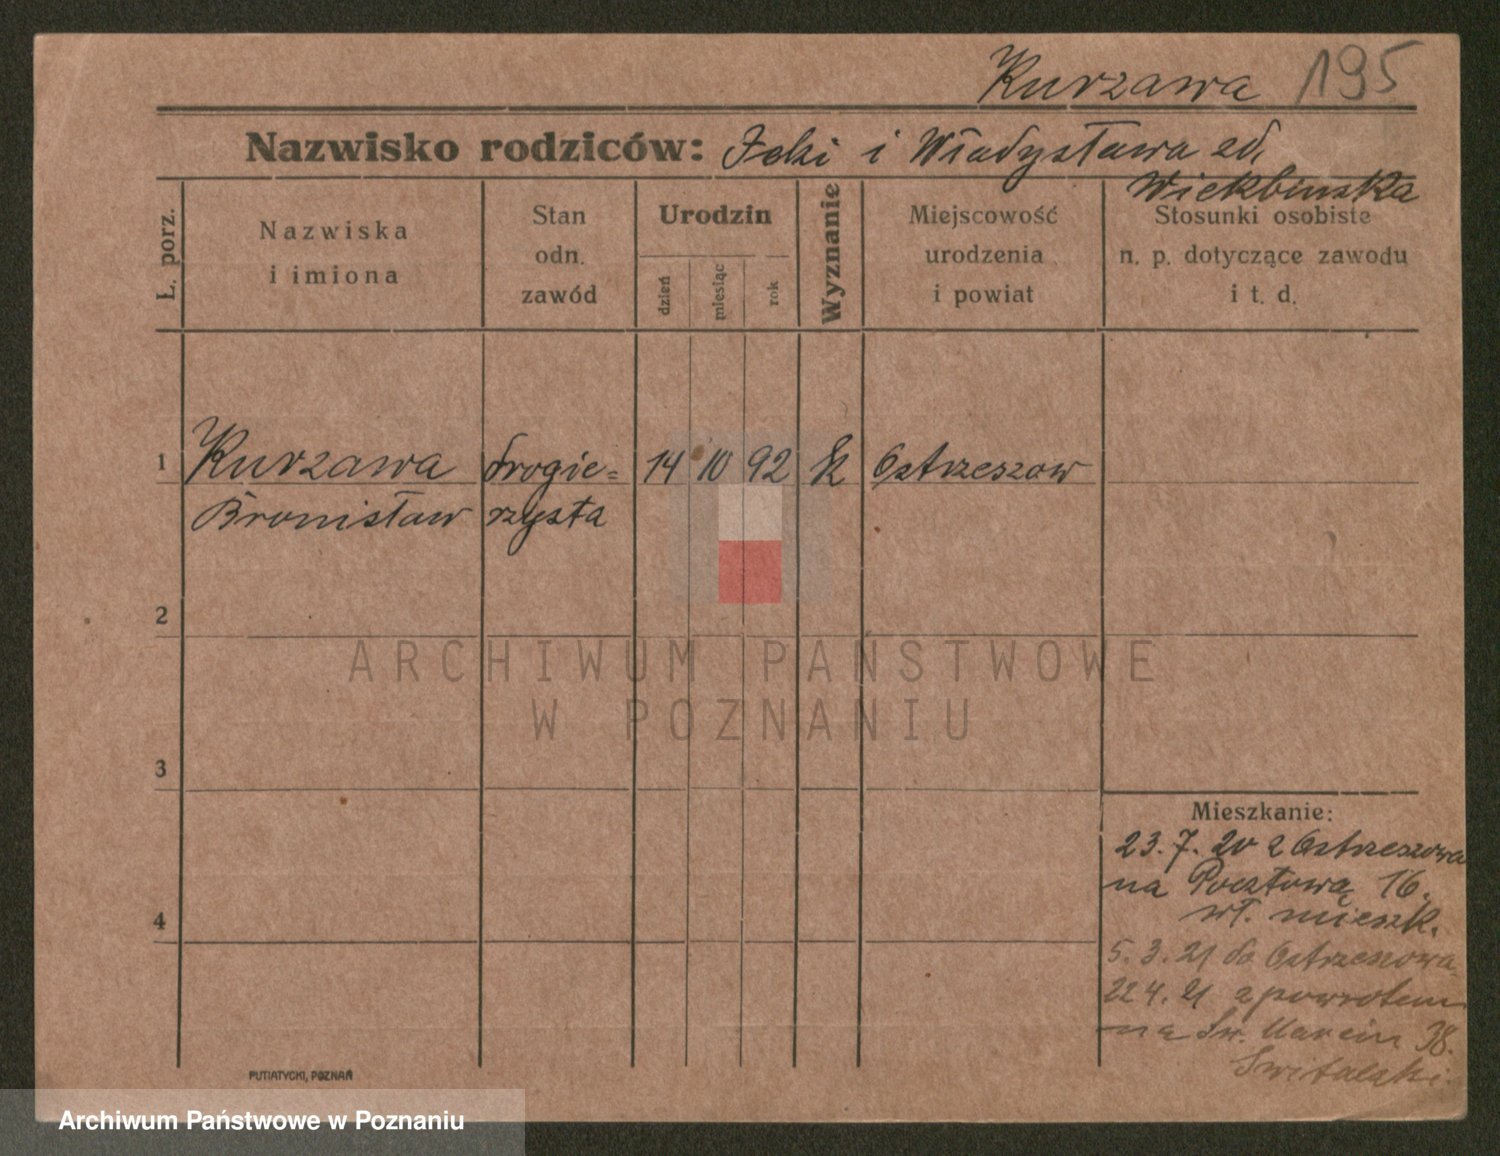 Kurzawa 195
Nazwisko rodziców: i Władysława zd.
L. porz.
Nazwiska
i imiona
Stan
odn.
zawód
Urodzin
dzień
miesiąc
rok
Wyznanie
Miejscowość
urodzenia
i powiat
Stosunki osobiste
n. p. dotyczące zawodu
i t. d.
1 Kurzawa drogie= 14 10 92 k Ostrzeszow
Bronisław rzysta
2
ARCHIWUM PAŃSTWOWE
W POZNANIU
3
Mieszkanie:
23.7.20 z Ostrzeszowa
na Pocztową 16.
wł. mieszk.
4
5.3.21 do Ostrzeszowa
22 4. 21 z powrotem
na Św. Marcin 38.
Switalski.
PUTIATYCKI, POZNAŃ
Archiwum Państwowe w Poznaniu